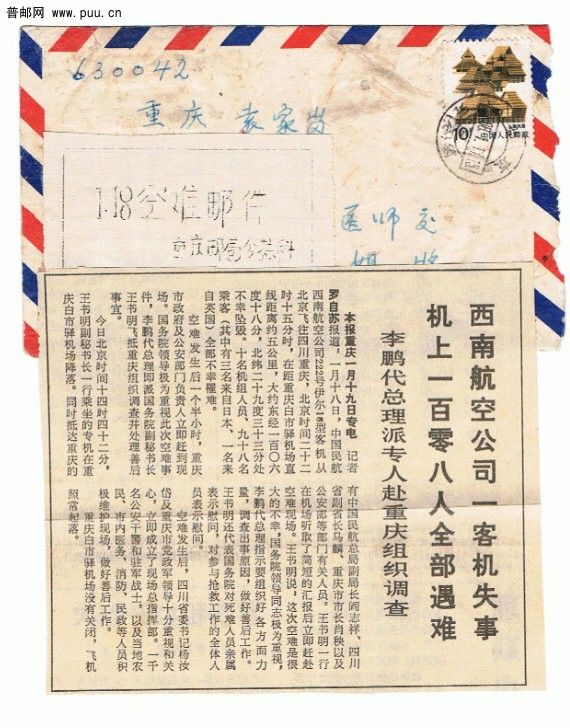 普邮网
www.puu.cn
630042
重庆 袁家岗
10分
中国人民邮政
1.18空难邮件
重庆邮局公共科
医师交
姐 收
西南航空公司一客机失事
机上一百零八人全部遇难
李鹏代总理派专人赴重庆组织调查
本报重庆一月十九日专电 记者
罗自苏报道,一月十八日,中国民航
西南航空公司222号伊尔—18型客机从
北京飞往四川重庆,北京时间二十二
时十五分时,在距重庆白市驿机场直
线距离约五公里,大约东经一百〇六
度十八分,北纬二十九度三十三分处
不幸坠毁。十名机组人员、九十八名
乘客(其中有三名来自日本、一名来
自英国)全部不幸罹难。
空难发生后一个半小时,重庆
市政府及公安部门负责人立即赶到现
场。国务院领导极为重视此次空难事
件,李鹏代总理即派国务院副秘书长
王书明飞抵重庆组织调查并处理善后
事宜。
今日北京时间十四时四十二分,
王书明副秘书长一行乘坐的专机在重
庆白市驿机场降落。同时抵达重庆的
有中国民航总局副局长阎志祥、四川
省副省长马麟、重庆市市长肖秧以及
公安部等部门有关人员。王书明一行
在机场听取了简短的汇报后立即赶赴
空难现场。王书明说,这次空难是很
大的不幸,国务院领导同志极为重视,
李鹏代总理指示要组织好各方面力
量,调查出事原因,做好善后工作。
王书明还代表国务院对死难人员亲属
表示慰问,对参与抢救工作的全体人
员表示慰问。
空难发生后,四川省委书记杨汝
岱及重庆市党政军领导十分重视和关
心,立即成立了现场总指挥部。一千
名公安干警和驻军战士,以及当地农
民、市内医务、消防、民政等人员积
极维护现场,做好善后工作。
重庆白市驿机场没有关闭,飞机
照常起落。